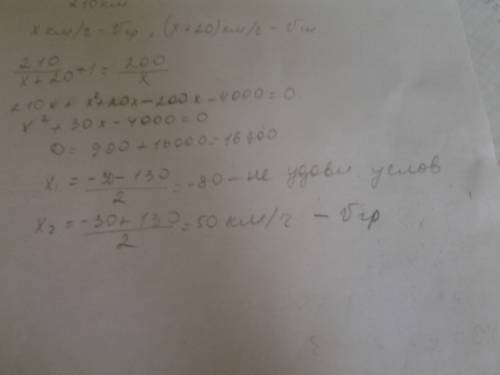 210 км
x км/г - Vгр, (x+20) км/г - Vм
210/(x+20) + 1 = 200/x
210x + x²+20x-200x-4000=0
x²+30x-4000=0
D = 900+16000=16900
x₁ = (-30-130)/2 = -80 - не удовл услов
x₂ = (-30+130)/2 = 50 км/г - Vгр